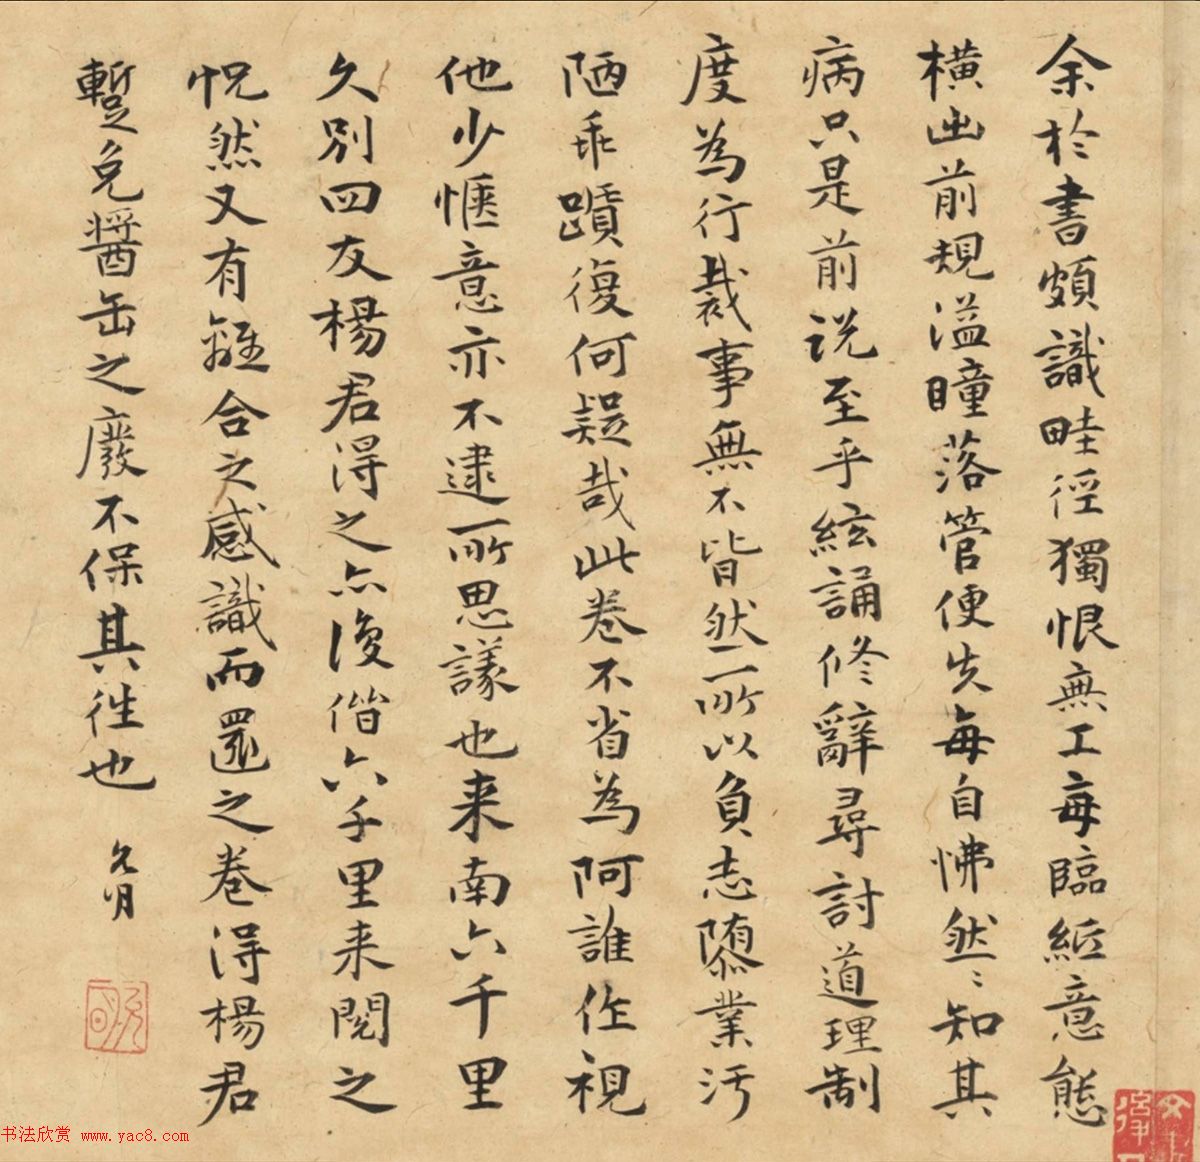 余於書頗識畦徑獨恨無工每臨紙意態
橫出前規溢瞳落管便失每自怫然〻知其
病只是前説至乎絃誦修辭尋討道理制
度為行裁事無不皆然所以負志隳業污
陋乖蹟復何疑哉此卷不省為阿誰作視
他少愜意亦不逮所思議也来南六千里
久別四友楊君得之亦復偕六千里来閱之
怳然又有離合之感識而還之卷得楊君
蹔免醬缶之廢不保其徃也
允明
允明
书法欣赏 www.yac8.com